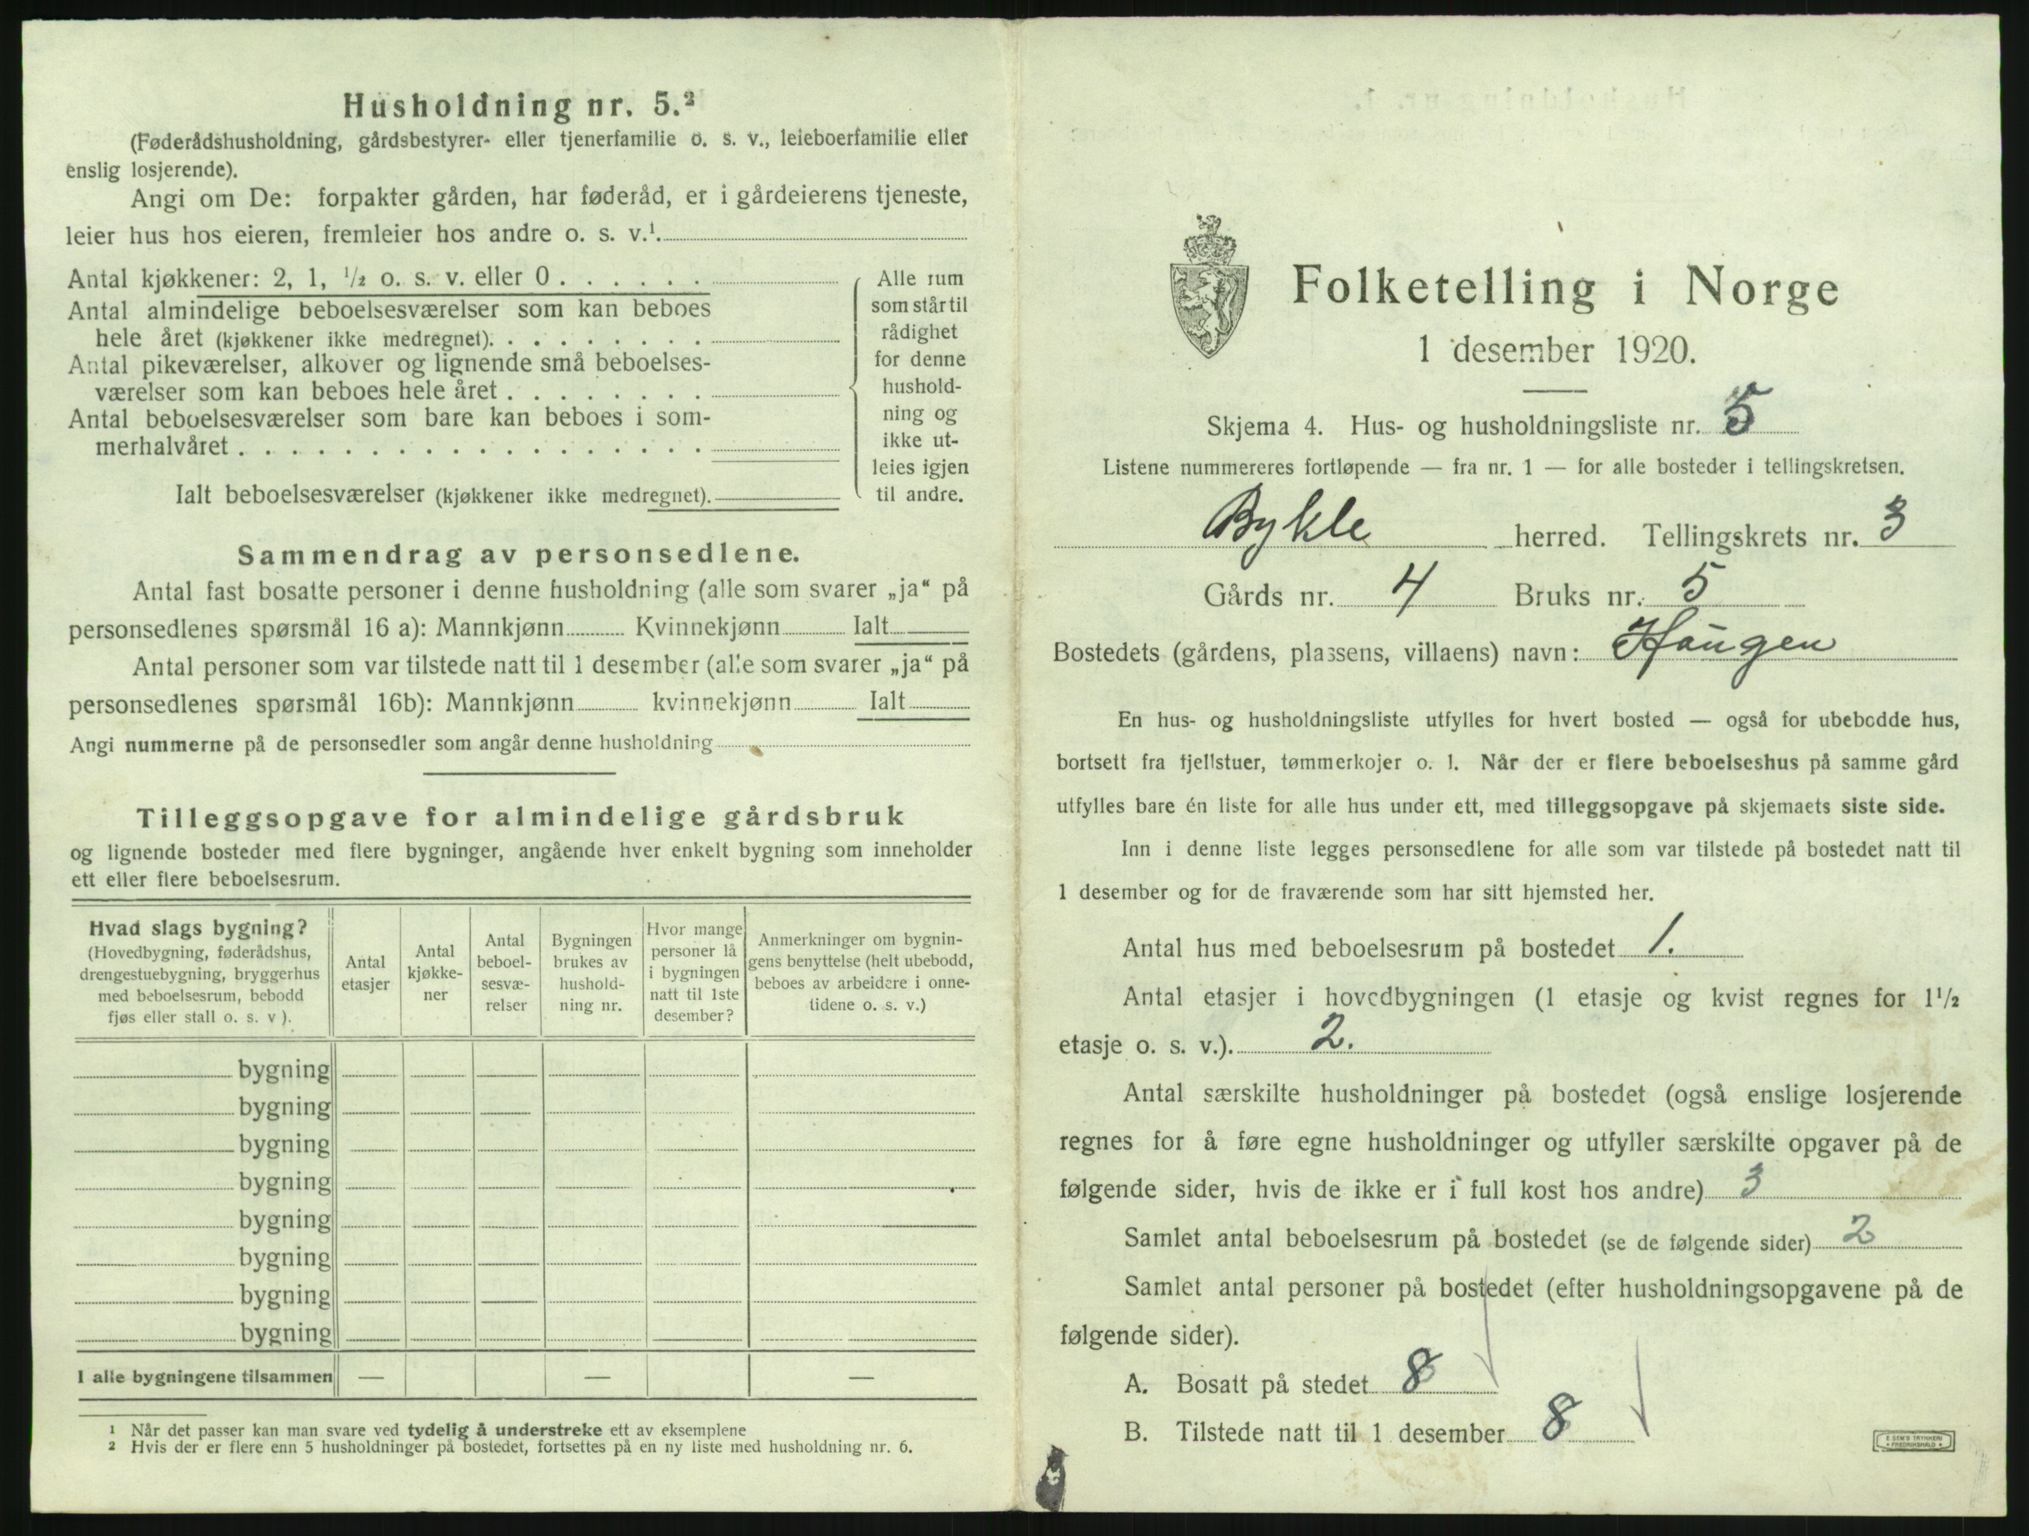 Husholdning nr. 5.²
(Føderådshusholdning, gårdsbestyrer- eller tjenerfamilie o. s. v., leieboerfamilie eller
enslig losjerende).
Angi om De: forpakter gården, har føderåd, er i gårdeierens tjeneste,
leier hus hos eieren, fremleier hos andre o. s. v.¹.
Antal kjøkkener: 2, 1, ½ o. s. v. eller 0 . . . . . .
Antal almindelige beboelsesværelser som kan beboes
hele året (kjøkkener ikke medregnet). . . . . . . . .
Antal pikeværelser, alkover og lignende små beboelses-
værelser som kan beboes hele året . . . . . . . .
Antal beboelsesværelser som bare kan beboes i som-
merhalvåret . . . . . . . . . . . . . . . . . .
Ialt beboelsesværelser (kjøkkener ikke medregnet).
Alle rum
som står til
rådighet
for denne
hushold-
ning og
ikke ut-
leies igjen
til andre.
Sammendrag av personsedlene.
Antal fast bosatte personer i denne husholdning (alle som svarer „ja“ på
personsedlenes spørsmål 16 a): Mannkjønn Kvinnekjønn Ialt
Antal personer som var tilstede natt til 1 desember (alle som svarer „ja“ på
personsedlenes spørsmål 16b): Mannkjønn kvinnekjønn Ialt
Angi nummerne på de personsedler som angår denne husholdning
Tilleggsopgave for almindelige gårdsbruk
og lignende bosteder med flere bygninger, angående hver enkelt bygning som inneholder
ett eller flere beboelsesrum.
Hvad slags bygning?
(Hovedbygning, føderådshus,
drengestuebygning, bryggerhus
med beboelsesrum, bebodd
fjøs eller stall o. s. v ).
Antal
etasjer
Antal
kjøkke-
ner
Antal
beboel-
sesvæ-
relser
Bygningen
brukes av
hushold-
ning nr.
Hvor mange
personer lå
i bygningen
natt til 1ste
desember?
Anmerkninger om bygnin-
gens benyttelse (helt ubebodd,
beboes av arbeidere i onne-
tidene o. s. v.)
bygning
bygning
bygning
bygning
bygning
bygning
bygning
bygning
I alle bygningene tilsammen — — —
¹ Når det passer kan man svare ved tydelig å understreke ett av eksemplene
² Hvis der er flere enn 5 husholdninger på bostedet, fortsettes på en ny liste med husholdning nr. 6.
Folketelling i Norge
1 desember 1920.
Skjema 4. Hus- og husholdningsliste nr. 5
Listene nummereres fortløpende — fra nr. 1 — for alle bosteder i tellingskretsen.
Bykle herred. Tellingskrets nr. 3
Gårds nr. 4 Bruks nr. 5
Bostedets (gårdens, plassens, villaens) navn: Haugen
En hus- og husholdningsliste utfylles for hvert bosted — også for ubebodde hus,
bortsett fra fjellstuer, tømmerkojer o. l. Når der er flere beboelseshus på samme gård
utfylles bare én liste for alle hus under ett, med tilleggsopgave på skjemaets siste side.
Inn i denne liste legges personsedlene for alle som var tilstede på bostedet natt til
1 desember og for de fraværende som har sitt hjemsted her.
Antal hus med beboelsesrum på bostedet 1.
Antal etasjer i hovedbygningen (1 etasje og kvist regnes for 1½
etasje o. s. v.). 2.
Antal særskilte husholdninger på bostedet (også enslige losjerende
regnes for å føre egne husholdninger og utfyller særskilte opgaver på de
følgende sider, hvis de ikke er i full kost hos andre) 3
Samlet antal beboelsesrum på bostedet (se de følgende sider) 2
Samlet antal personer på bostedet (efter husholdningsopgavene på de
følgende sider).
A. Bosatt på stedet 8
B. Tilstede natt til 1 desember 8
E SEM'S TRYKKERI
FREDRIKSHALD